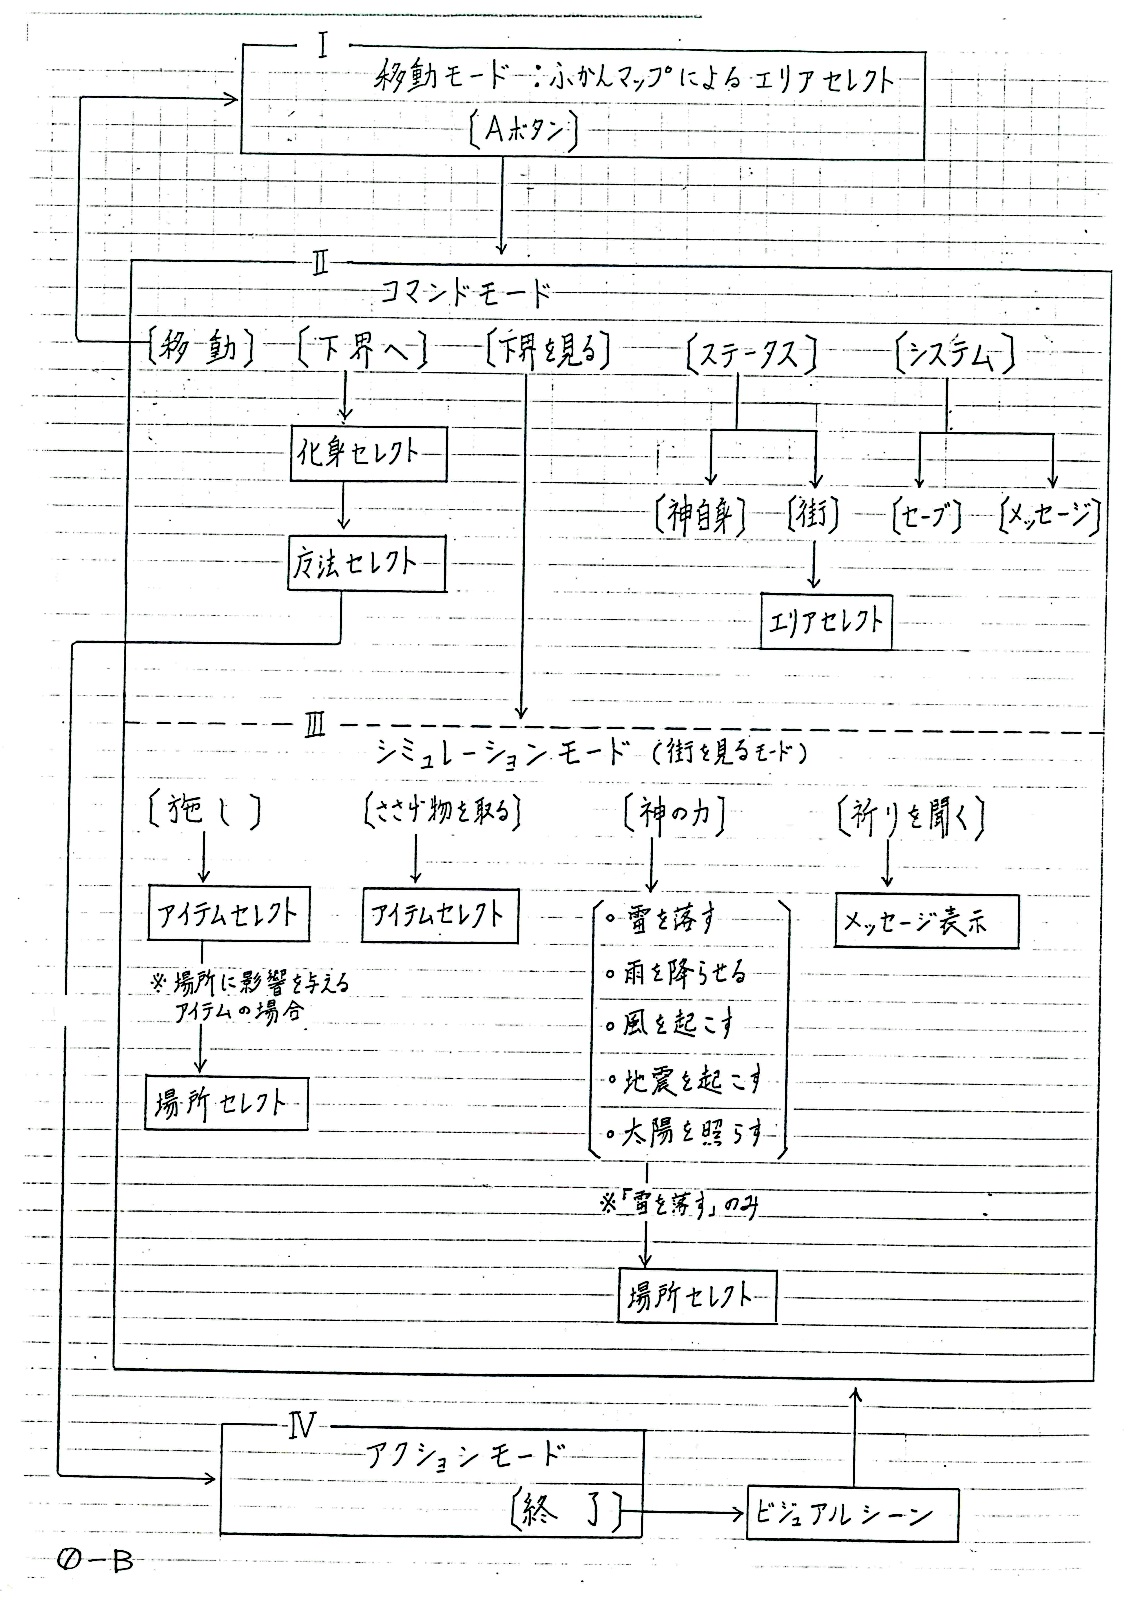 I
移動モード:ふかんマップによるエリアセレクト
[Aボタン]
II
コマンドモード
[移動] [下界へ] [下界を見る] [ステータス] [システム]
化身セレクト
[神自身] [街] [セーブ] [メッセージ]
方法セレクト
エリアセレクト
III
シミュレーションモード(街を見るモード)
[施し] [ささげ物を取る] [神の力] [祈りを聞く]
アイテムセレクト アイテムセレクト 。雷を落す メッセージ表示
※場所に影響を与える 。雨を降らせる
アイテムの場合 。風を起こす
場所セレクト 。地震を起こす
。太陽を照らす
※「雷を落す」のみ
場所セレクト
IV
アクションモード
[終了] ビジュアルシーン
0-B